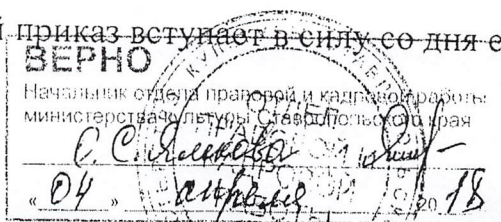 й приказ вступает в силу со дня е
ВЕРНО
Начальник отдела правовой и кадровой работы
министерства культуры Ставропольского края
« 04 » апреля 20 18